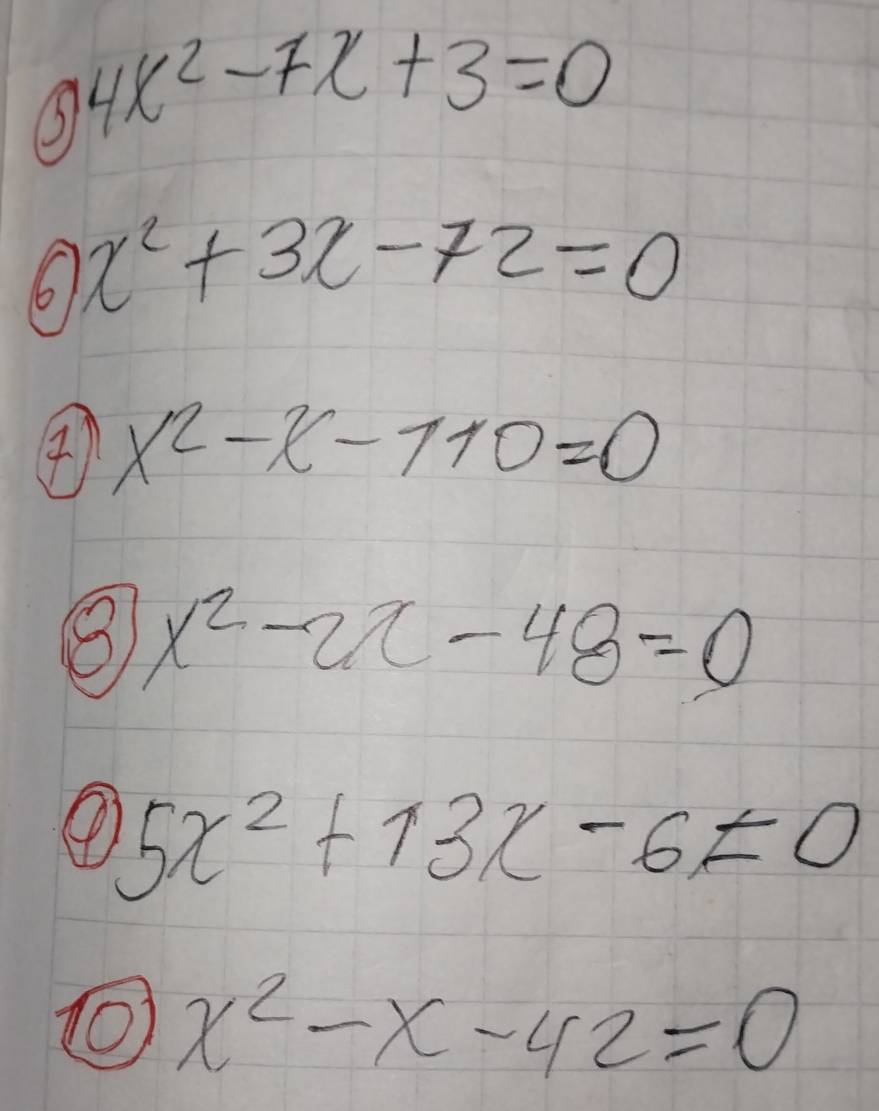 ⑤ 4x² - 7x + 3 = 0
⑥ x² + 3x - 72 = 0
⑦ x² - x - 110 = 0
⑧ x² - 2x - 48 = 0
⑨ 5x² + 13x - 6 = 0
⑩ x² - x - 42 = 0